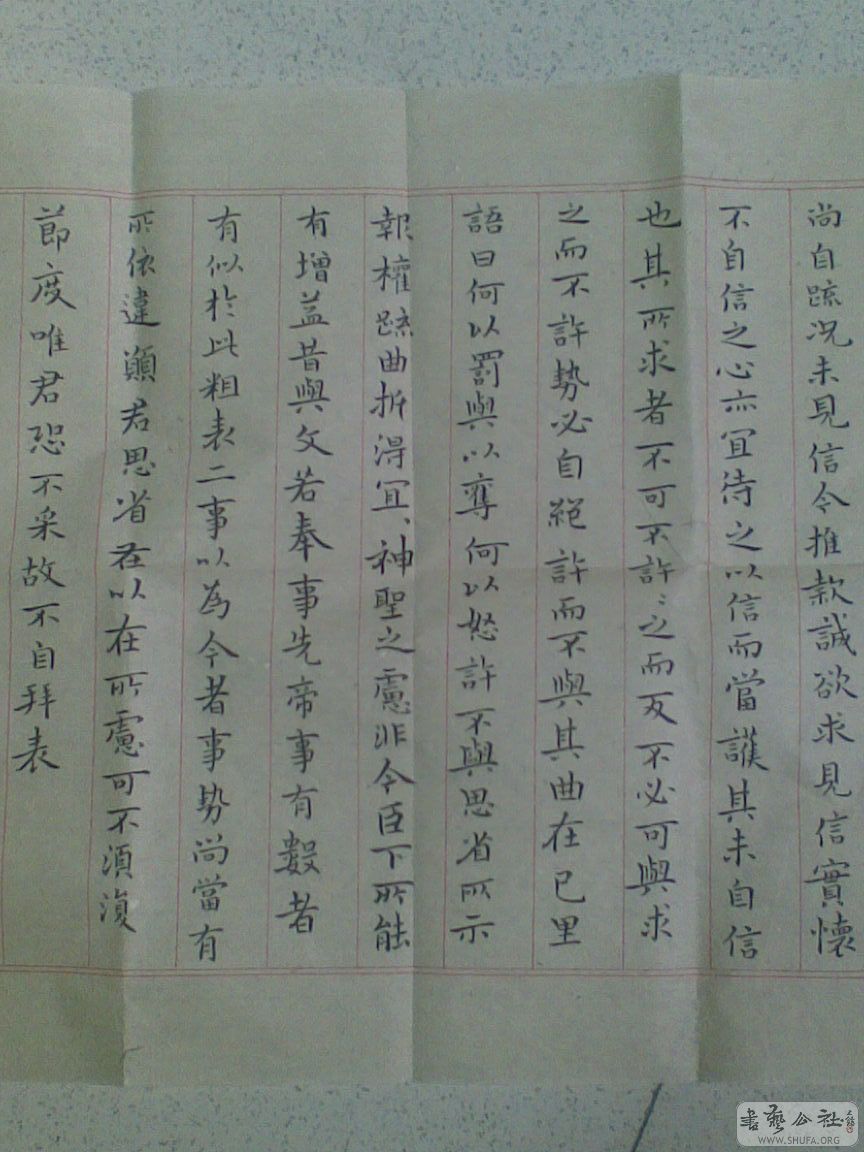 尚自疏况未見信今推款誠欲求見信實懷
不自信之心亦宜待之以信而當護其未自信
也其所求者不可不許〻之而反不必可與求
之而不許勢必自絕許而不與其曲在己里
語曰何以罰與以奪何以怒許不與思省所示
報權疏曲折得宜、神聖之慮非今臣下所能
有增益昔與文若奉事先帝事有數者
有似於此粗表二事以為今者事勢尚當有
所依違願君思省若以在所慮可不須復
節度唯君恐不采故不自拜表
書藝公社
WWW.SHUFA.ORG